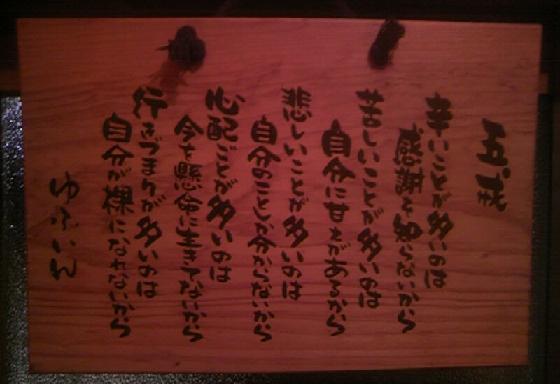 五戒
辛いことが多いのは
感謝を知らないから
苦しいことが多いのは
自分に甘えがあるから
悲しいことが多いのは
自分のことしか分からないから
心配ごとが多いのは
今を懸命に生きてないから
行きづまりが多いのは
自分が裸になれないから
ゆふいん